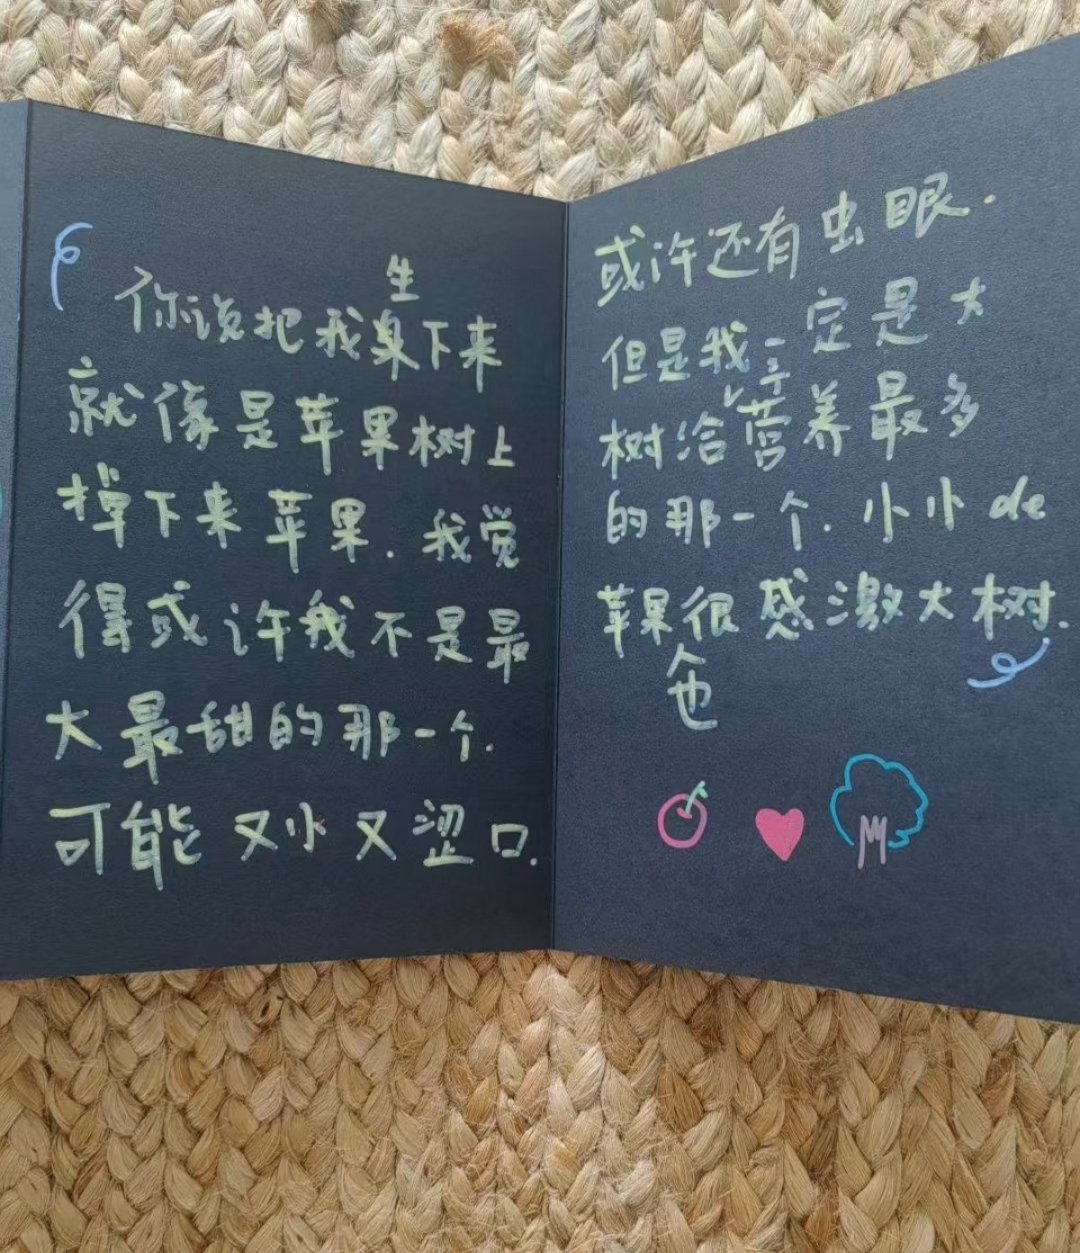 生
你说把我臭下来
就像是苹果树上
掉下来苹果.我觉
得或许我不是最
大最甜的那一个.
可能又小又涩口.
或许还有虫眼.
但是我一定是大
树给营养最多
的那一个.小小de
苹果很感激大树.
也